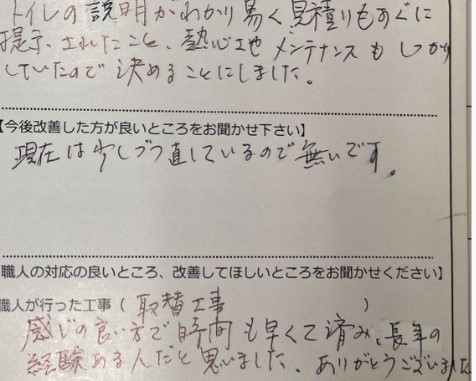 トイレの説明がわかり易く見積りもすぐに
提示されたこと、熱心さ メンテナンスも しっかり
していたので決めることにしました。
【今後改善した方が良いところをお聞かせ下さい】
現在は少しづつ直しているので無いです。
職人の対応の良いところ、改善してほしいところをお聞かせください】
職人が行った工事（ 取替工事 ）
感じの良い方で時間も早くて済み、長年の
経験ある人だと思いました。ありがとうございました